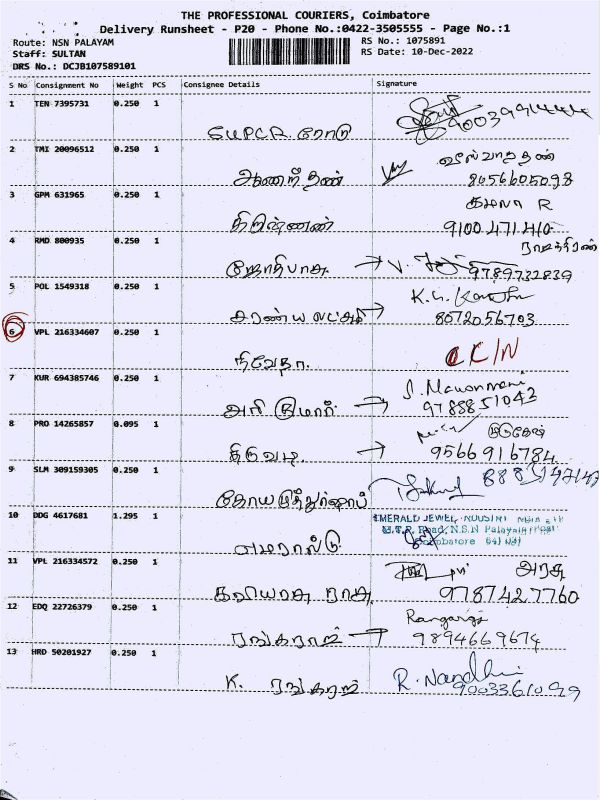 THE PROFESSIONAL COURIERS, Coimbatore
Delivery Runsheet - P20 - Phone No.:0422-3505555 - Page No.:1
Route: NSN PALAYAM
Staff: SULTAN
DRS No.: DCJB107589101
RS No.: 1075891
RS Date: 10-Dec-2022
S No Consignment No Weight PCS Consignee Details Signature
1 TEN 7395731 0.250 1
2 TMI 20096512 0.250 1
8056605098
3 GPM 631965 0.250 1
கமலா R
9100471410
4 RMD 800935 0.250 1
ஜோதிபாசு 9789732839
5 POL 1549318 0.250 1
சரண்யலட்சுமி 8072056703
6 VPL 216334607 0.250 1
நிவேதா.
7 KUR 694385746 0.250 1
அரிகுமார் 9788851042
8 PRO 14265857 0.095 1
முருகேஷ்
9566916784
9 SLM 309159305 0.250 1
10 DDG 4617681 1.295 1
EMERALD JEWEL
M.T.P. Road, N.S.N Palayam
Coimbatore 641 031
எமரால்டு
11 VPL 216334572 0.250 1
அரசு
9787427760
12 EDQ 22726379 0.250 1
Rangaraj
ரங்கராஜ் 9894669674
13 HRD 50201927 0.250 1
K. ரங்கராஜ் R. Nandhini